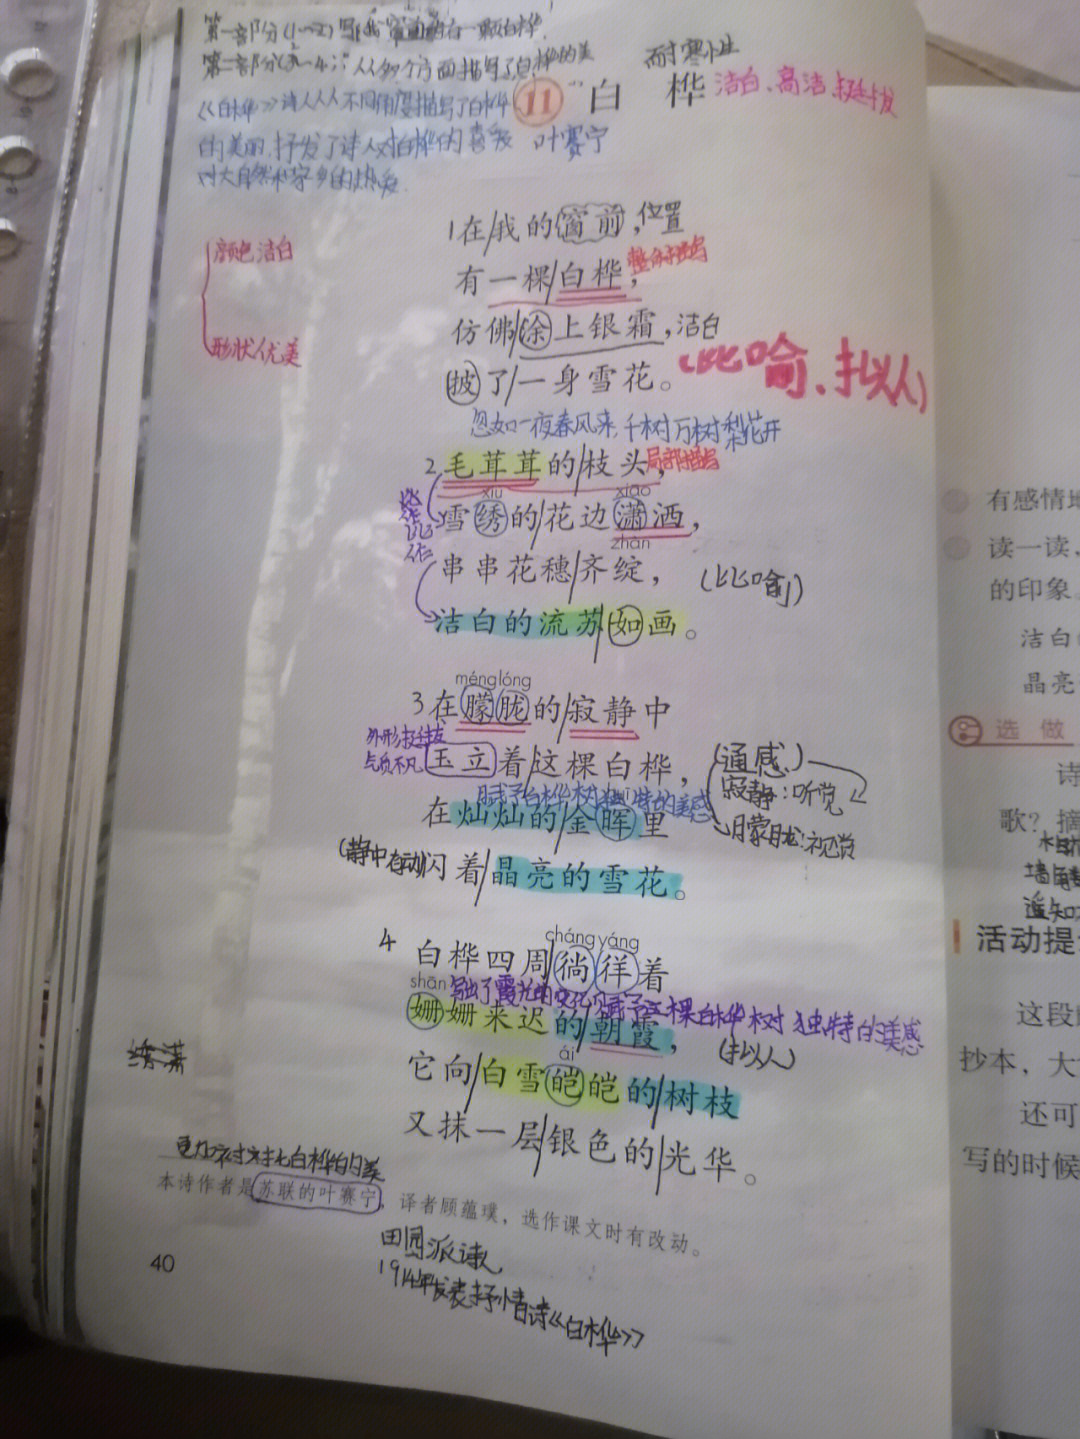 第一部分(1~2)写我窗前有一颗白桦.
第二部分(3~4):从多个方面描写了白桦的美
《白桦》诗人从不同角度描写了白桦
的美丽,抒发了诗人对白桦的喜爱
对大自然和家乡的热爱.
耐寒性
11 白 桦
洁白、高洁、挺拔
叶赛宁
颜色洁白
形状优美
1在我的窗前,位置
有一棵白桦,整体描写
仿佛涂上银霜,洁白
披了一身雪花。
(比喻、拟人)
忽如一夜春风来,千树万树梨花开
2毛茸茸的枝头,局部描写
xiù xiāo
雪绣的花边潇洒,
zhàn
串串花穗齐绽,(比喻)
洁白的流苏如画。
ménglóng
3在朦胧的寂静中
外形挺拔
气质不凡
玉立着这棵白桦,
(通感)
寂静:听觉
朦胧:视觉
赋予白桦树独特的美感
在灿灿的金晖里
(静中有动)闪着晶亮的雪花。
4白桦四周徜徉着
cháng yáng
shān
写出了霞光的变化赋予这棵白桦树独特的美感
姗姗来迟的朝霞,
(拟人)
ái
它向白雪皑皑的树枝
又抹一层银色的光华。
更加衬托白桦的美
本诗作者是苏联的叶赛宁,译者顾蕴璞,选作课文时有改动。
田园派诗人
1914年发表抒情诗《白桦》
40
有感情地
读一读,
的印象。
洁白
晶亮
选做
诗
歌?摘
墙角
遥知
活动提
这段
抄本,大
还可
写的时候